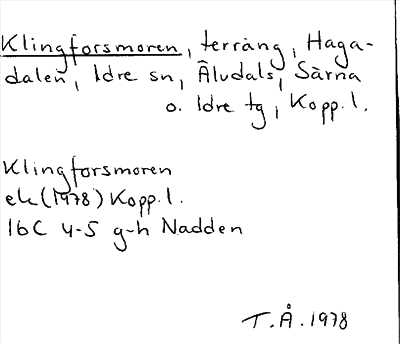 Klingforsmoren, terräng, Haga-
dalen, Idre sn, Äludals, Särna
o. Idre tg, Kopp. l.
Klingforsmoren
ek (1978) Kopp. l.
16C 4-5 g-h Nadden
T.Å. 1978